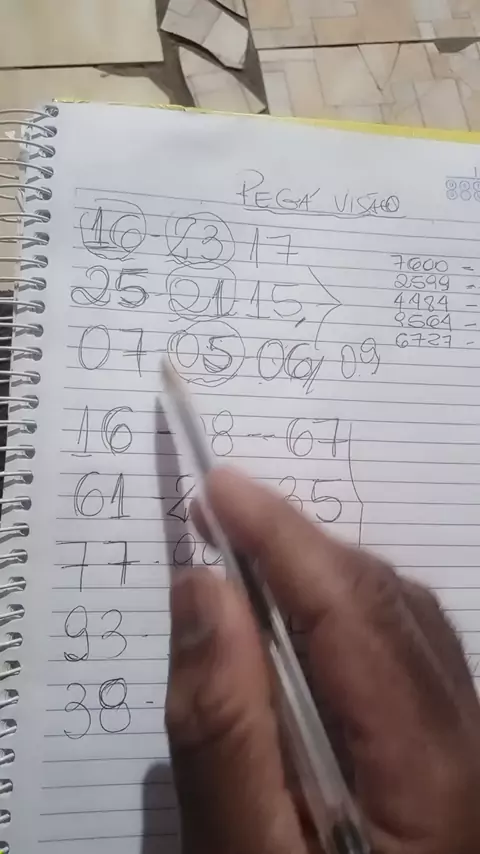 PEGA VISÃO
16 - 23 17
25 - 21 - 15
07 - 05 - 06 09
7600 =
2599 =
4484 -
9564 -
6727 -
16 - 8 - 67
61 - 2 35
77 -
93 -
38 -